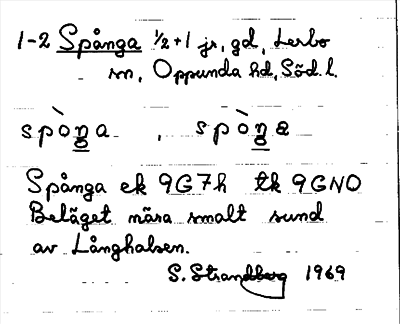 1-2 Spånga ½+1 jr, gd, Lerbo
sn, Oppunda hd, Söd. l.
spò̀ŋa , spò̀ŋa
Spånga ek 9G7h tk 9GNO
Beläget nära smalt sund
av Långhalsen.
S. Strandberg 1969